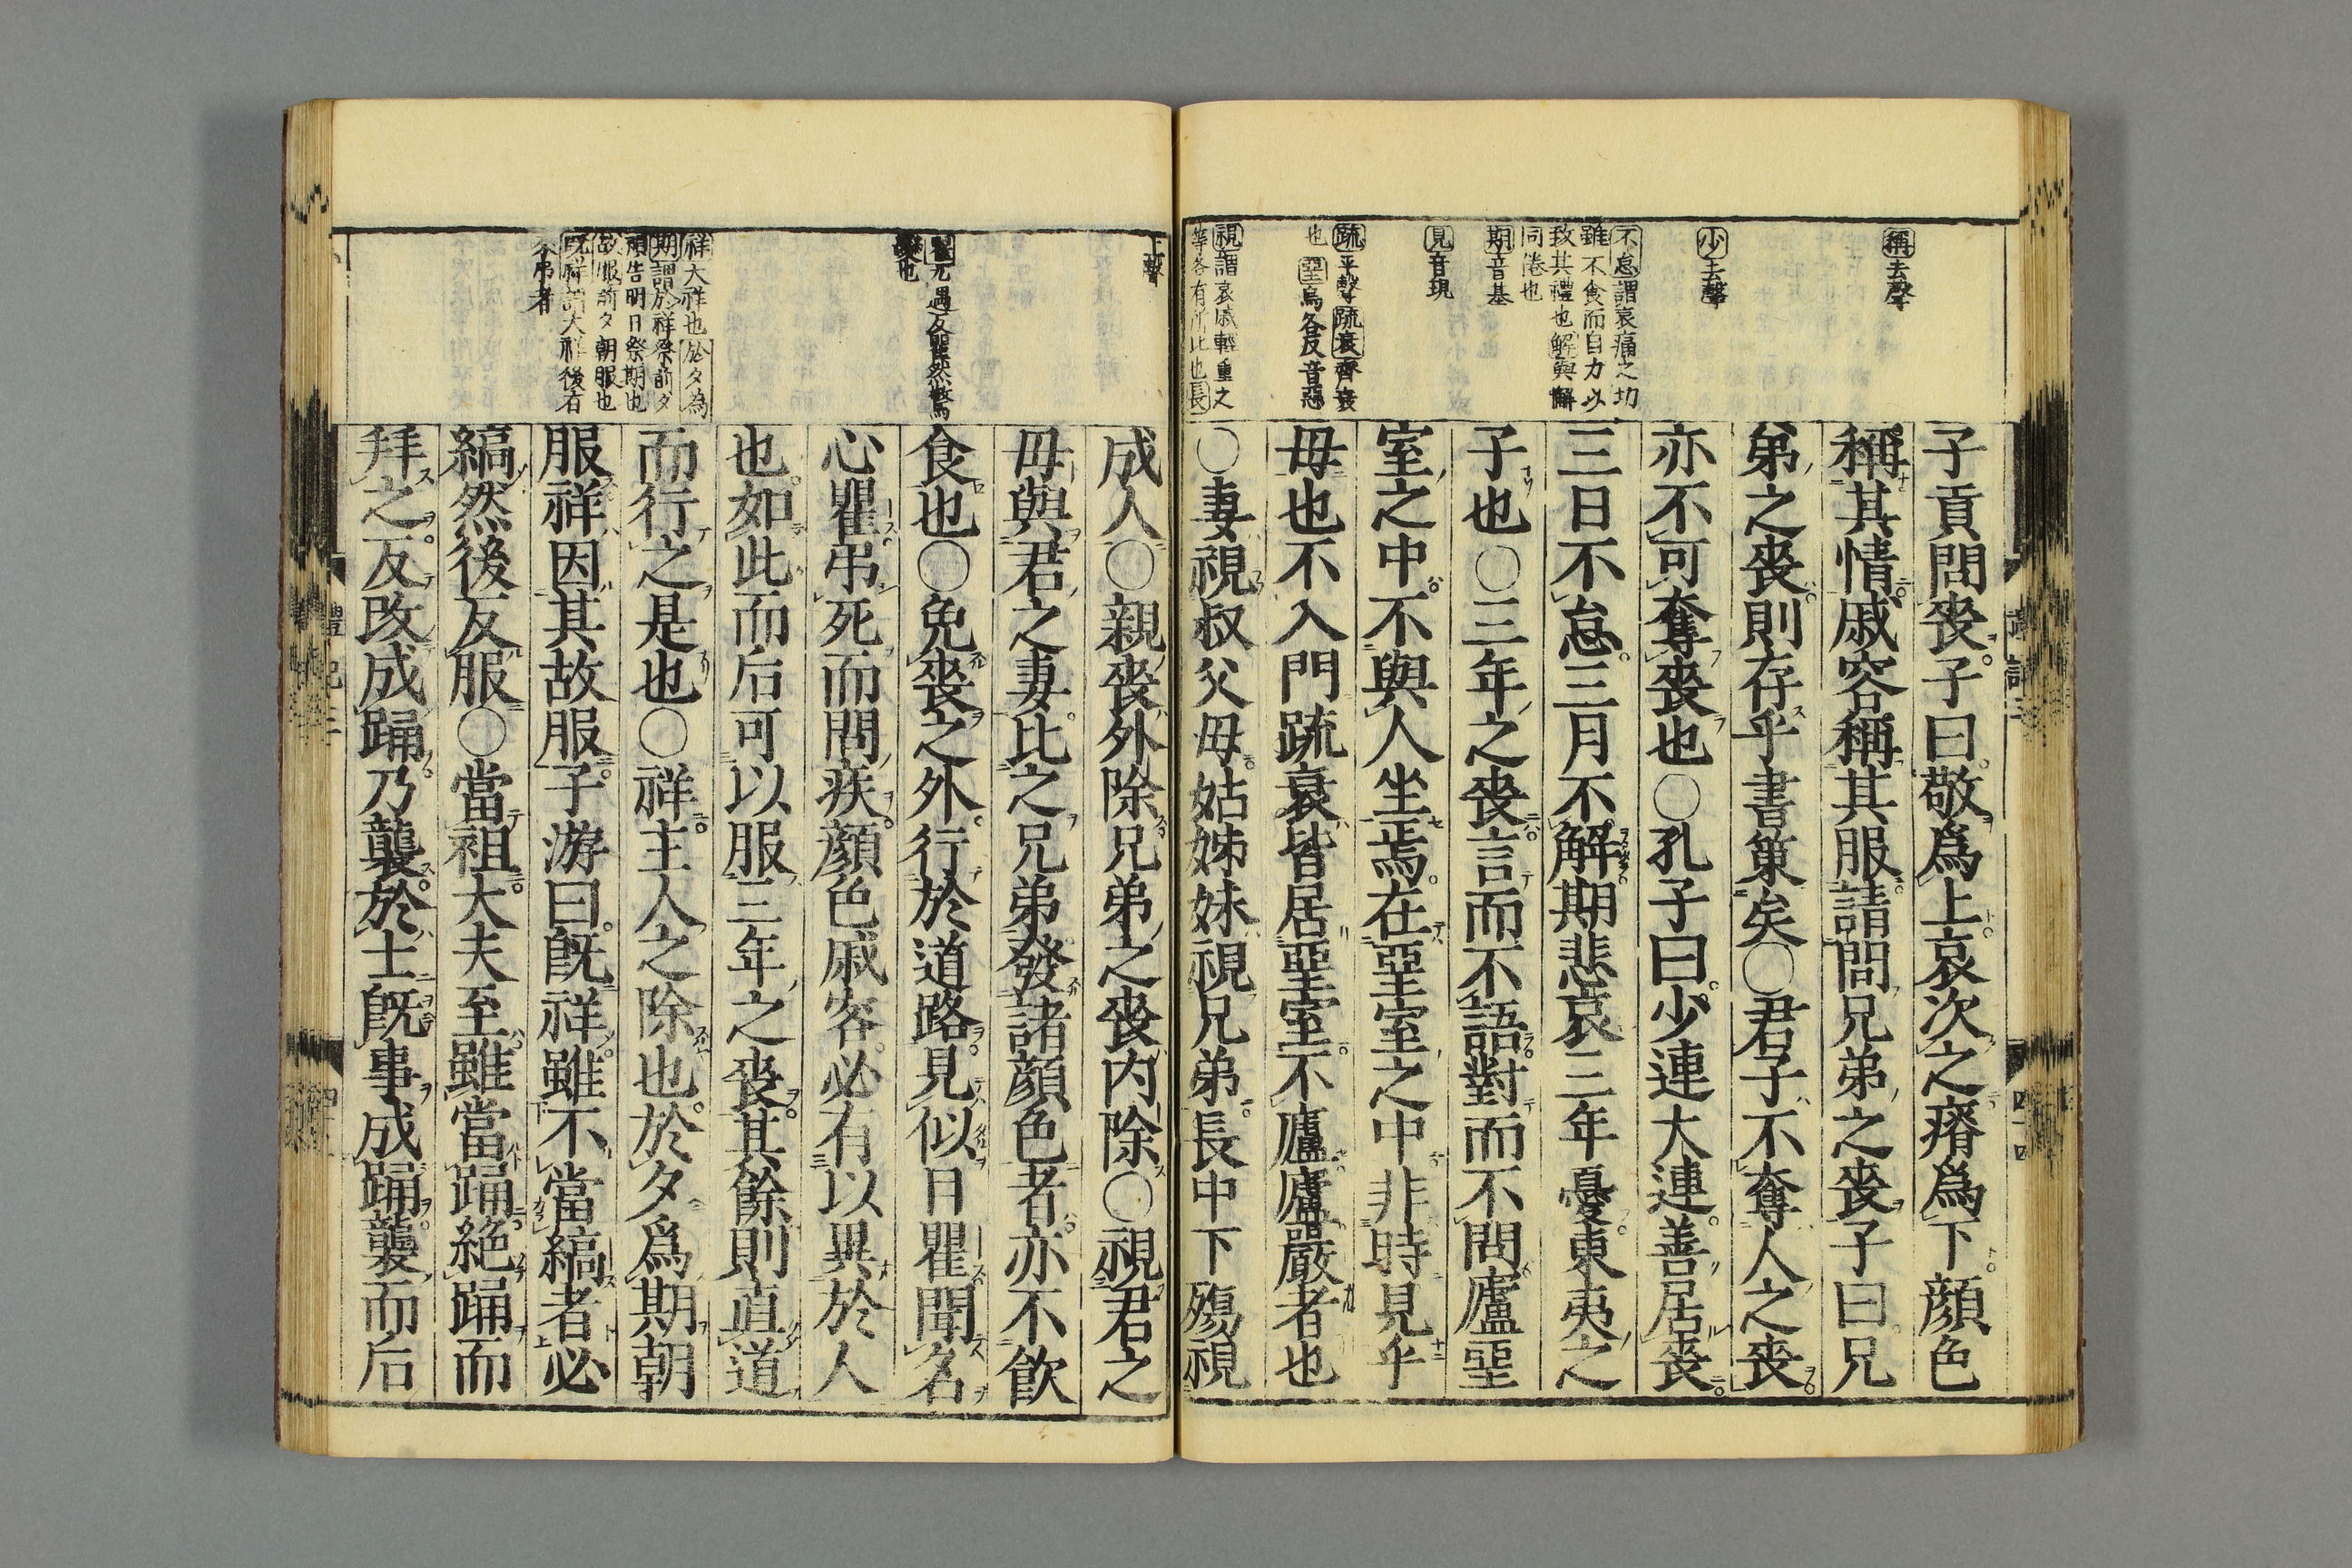 稱去聲
少去聲
不怠謂哀痛之切
雖不食而自力以
致其禮也解與懈
同倦也
期音基
見音現
疏平聲疏衰齊衰
也堊烏各反音惡
視謂哀戚輕重之
等各有所比也長
子貢問喪子曰敬爲上哀次之瘠爲下顔色
稱其情戚容稱其服請問兄弟之喪子曰兄
弟之喪則存乎書策矣○君子不奪人之喪
亦不可奪喪也○孔子曰少連大連善居喪
三日不怠三月不解期悲哀三年憂東夷之
子也○三年之喪言而不語對而不問廬堊
室之中不與人坐焉在堊室之中非時見乎
母也不入門疏衰皆居堊室不廬廬嚴者也
○妻視叔父母姑姊妹視兄弟長中下殤視
上聲
瞿九遇反瞿然驚
變也
祥大祥也於夕為
期謂於祥祭前夕
預告明日祭期也
故服前夕朝服也
既祥謂大祥後有
來弔者
成人○親喪外除兄弟之喪内除○視君之
母與君之妻比之兄弟發諸顔色者亦不飲
食也○免喪之外行於道路見似目瞿聞名
心瞿弔死而問疾顔色戚容必有以異於人
也如此而后可以服三年之喪其餘則直道
而行之是也○祥主人之除也於夕爲期朝
服祥因其故服子游曰既祥雖不當縞者必
縞然後反服○當袒大夫至雖當踊絶踊而
拜之反改成踊乃襲於士既事成踊襲而后